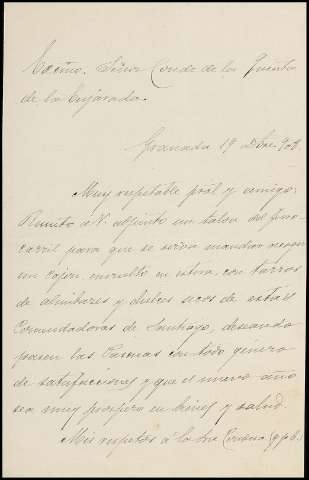 Excmo. Señor Conde de las Quintas
de la Enjarada.
Granada 19 Dbre 908.
Muy respetable pral y amigo:
Remito a V. adjunto un talon del ferro-
carril para que se sirva mandar recoger
un cajon, envuelto en estera, con tarros
de almibares y dulces secos de estas
Comendadoras de Santiago, deseando
pasen las Pascuas con todo género
de satisfacciones y que el nuevo año
sea muy prospero en bienes y salud.
Mis respetos á la Sra